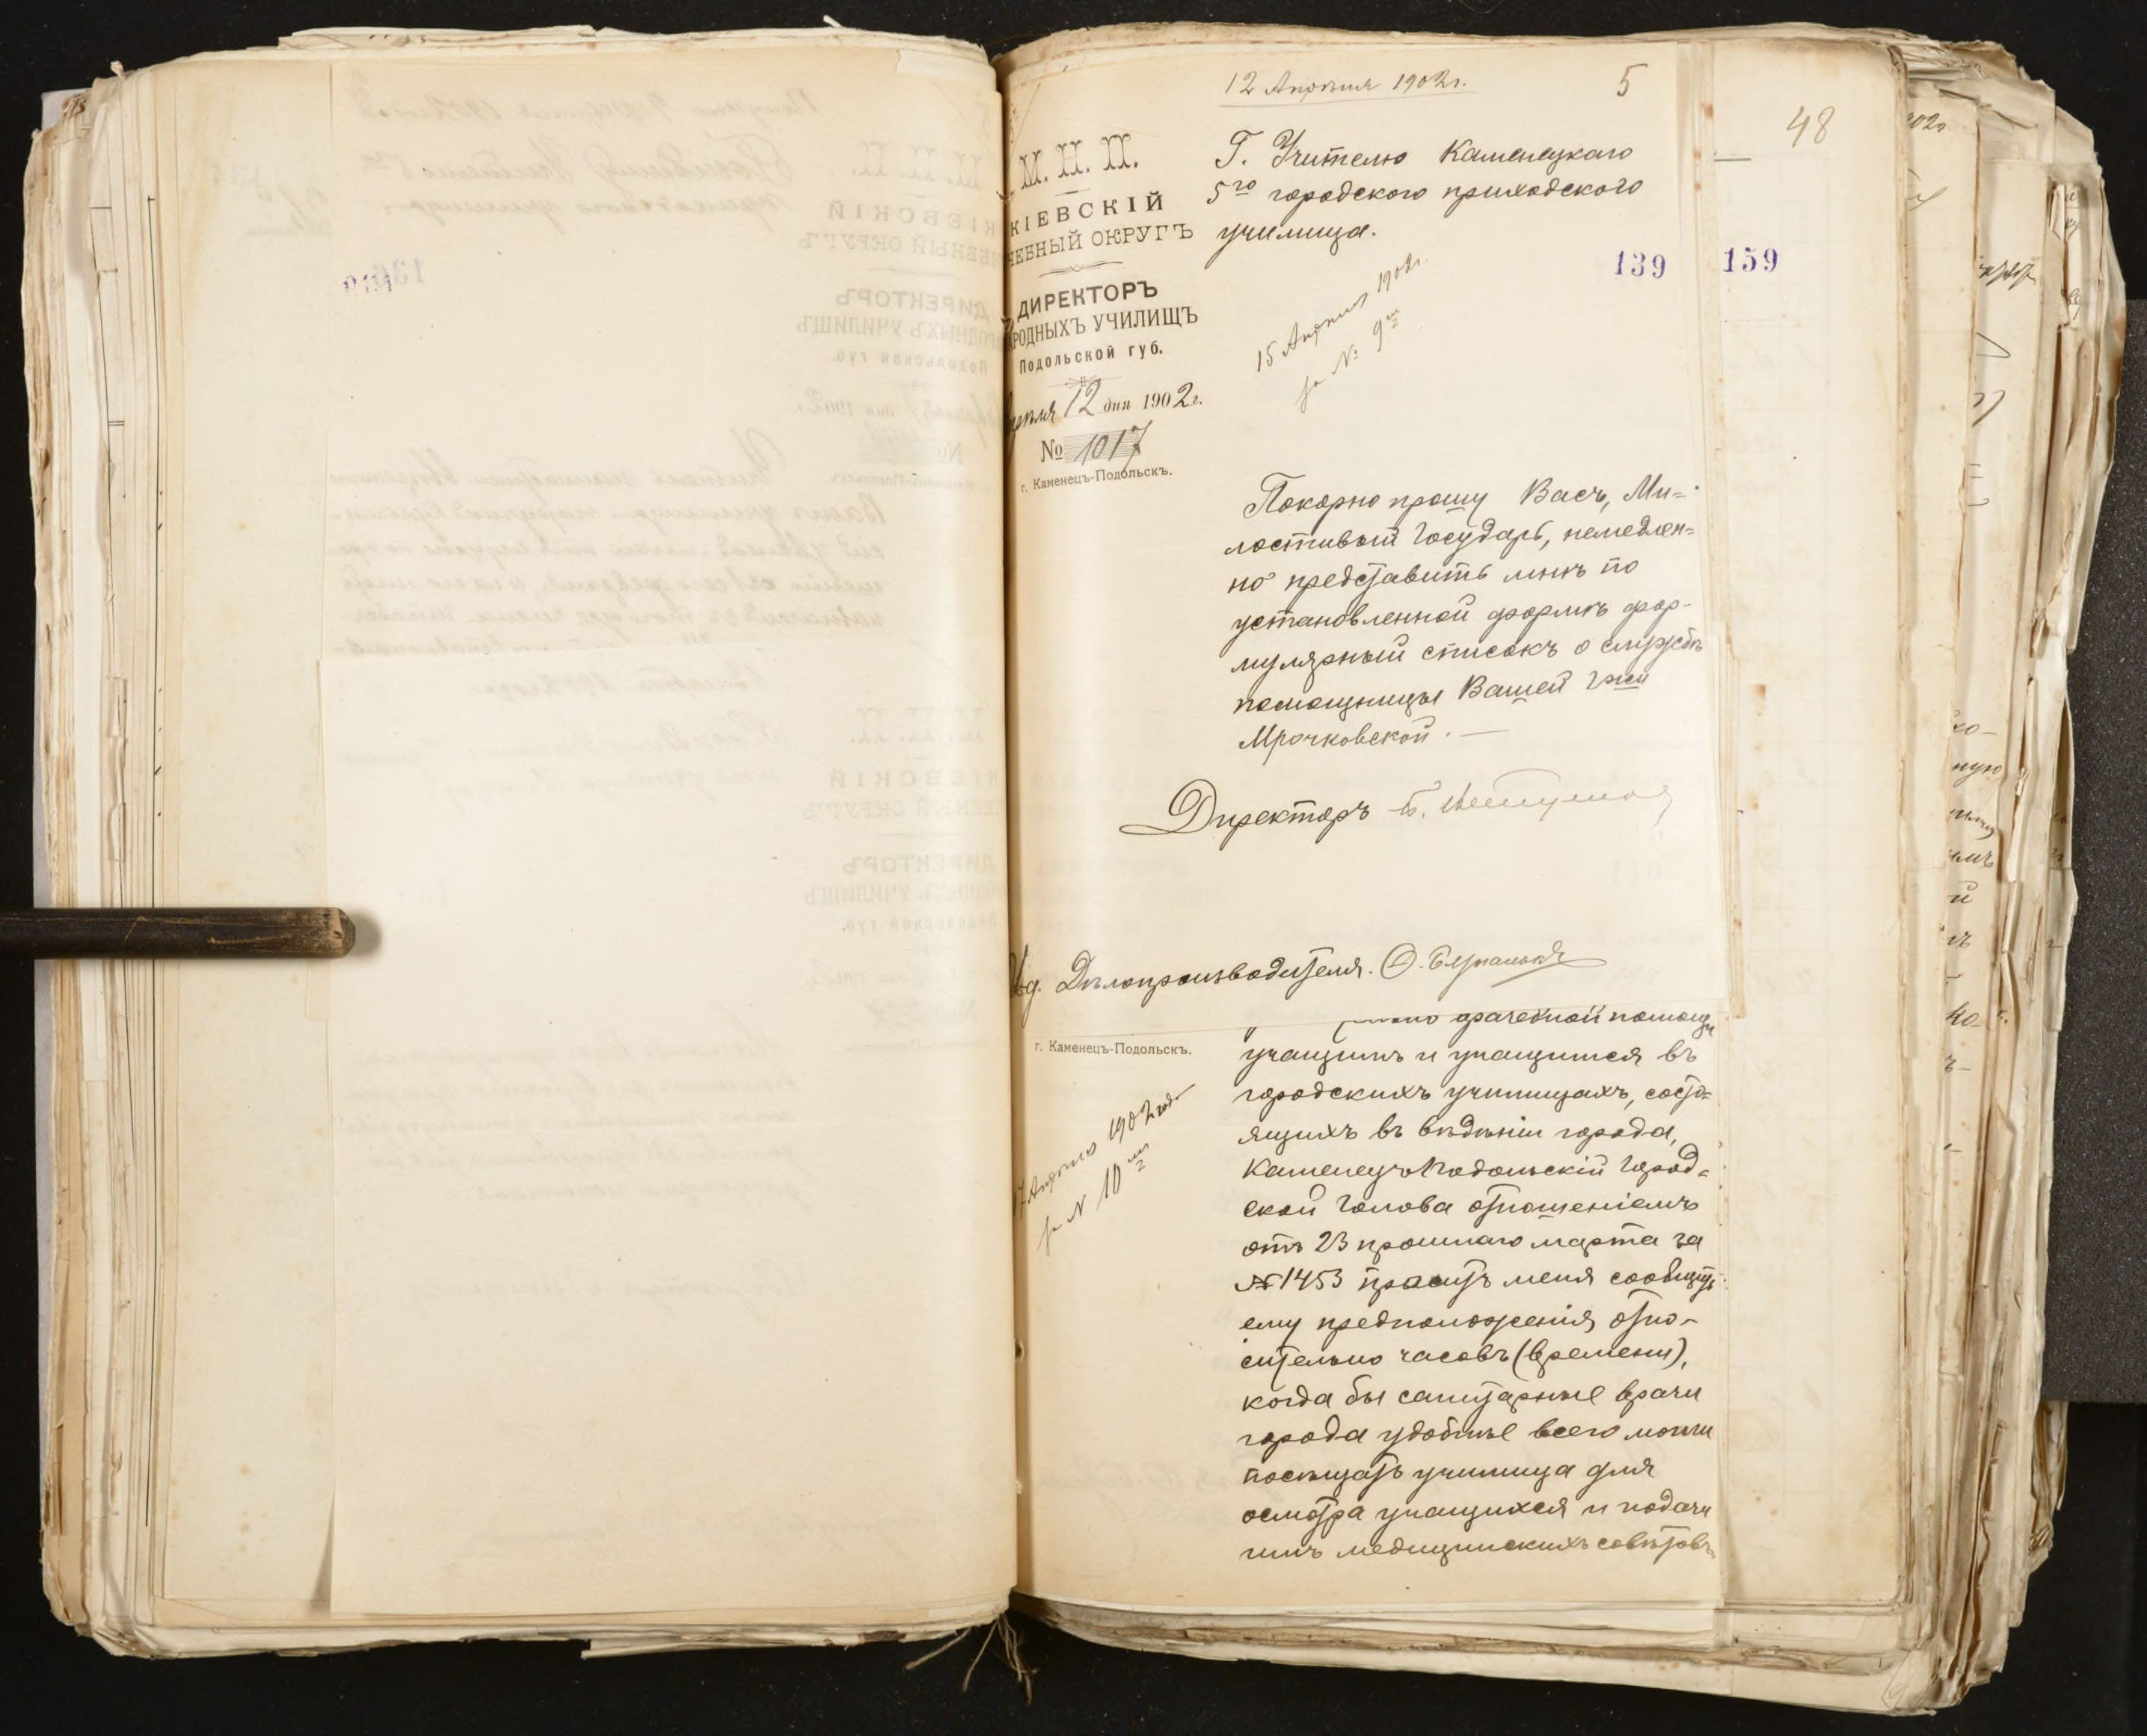 12 Апрѣля 1902г.
5
48
М. Н. П.
КІЕВСКІЙ
ЧЕБНЫЙ ОКРУГЪ
ДИРЕКТОРЪ
РОДНЫХЪ УЧИЛИЩЪ
Подольской губ.
12 дня 1902 г.
№ 1017
г. Каменецъ-Подольскъ.
Г. Учителю Каменецкаго
5го городского приходского
училища.
139
159
15 Апрѣля 1902г.
за № 9м
Покорно прошу Васъ, Ми=
лостивый Государь, немедлен=
но представить мнѣ по
установленной формѣ фор-
мулярный списокъ о службѣ
помощницы Вашей Г-жи
Мрочковской. —
Директоръ
Дѣлопроизводителя.
врачебной помощи
г. Каменецъ-Подольскъ.
учащимъ и учащимся въ
городскихъ училищахъ, состо=
ящихъ въ вѣдѣніи города,
Каменецъ-Подольскій Город=
ской Голова отношеніемъ
отъ 23 прошлаго марта за
№ 1453 проситъ меня сообщить
ему предположенія отно-
сительно часовъ (времени),
когда бы санитарные врачи
города удобнѣе всего могли
посѣщать училища для
осмотра учащихся и подачи
имъ медицинскихъ совѣтовъ
17 Апрѣля 1902 года
за № 10м